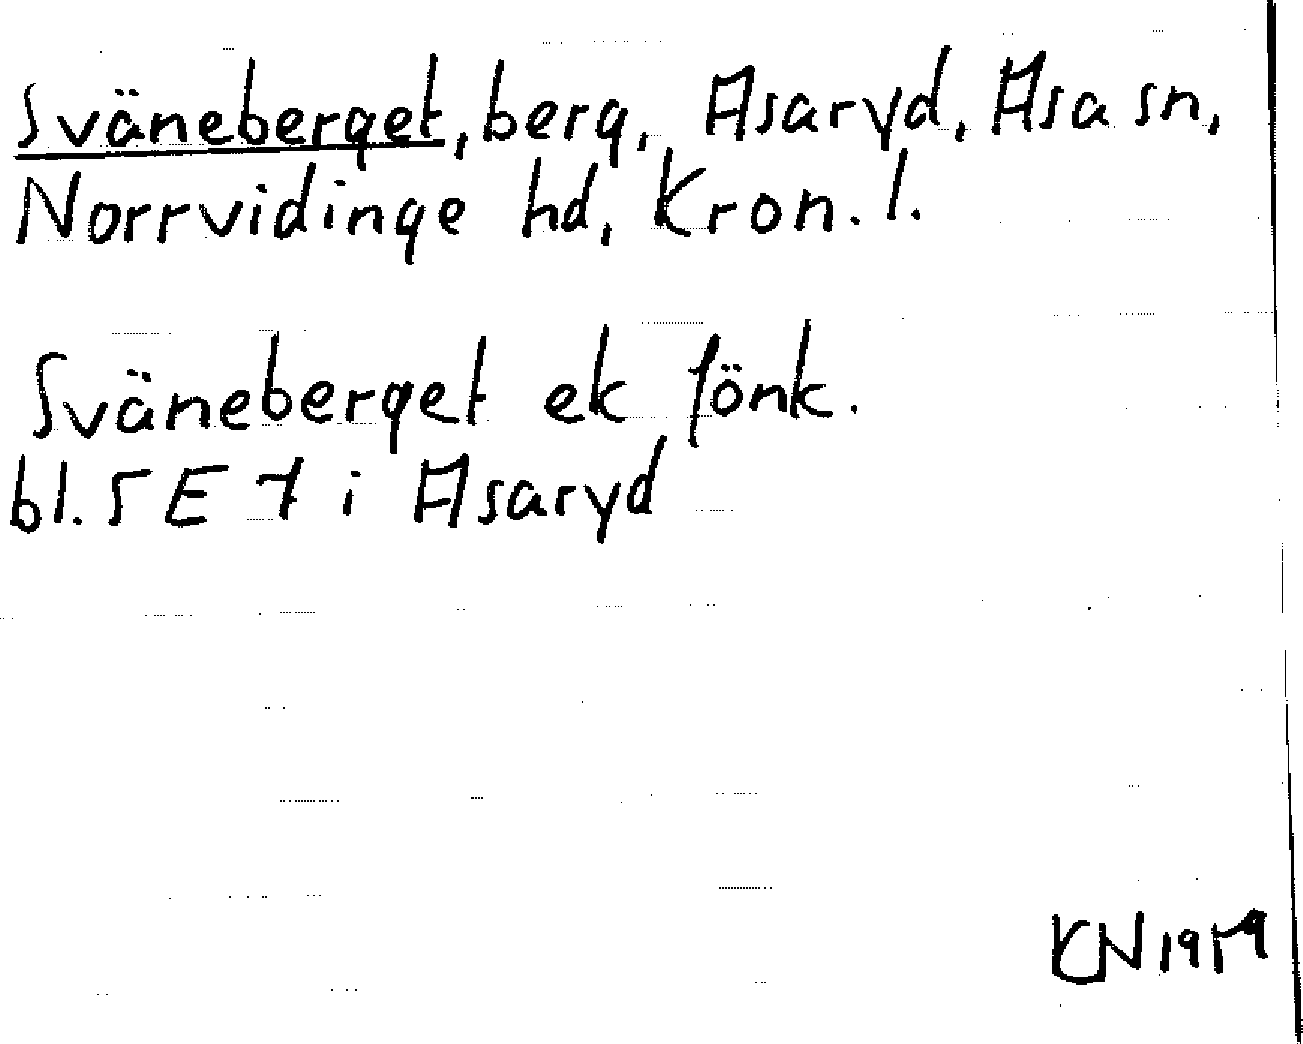 Sväneberget, berg, Asaryd, Asa sn,
Norrvidinge hd, Kron. l.
Sväneberget ek fönk.
bl. 5 E 7 i Asaryd
KN 1959